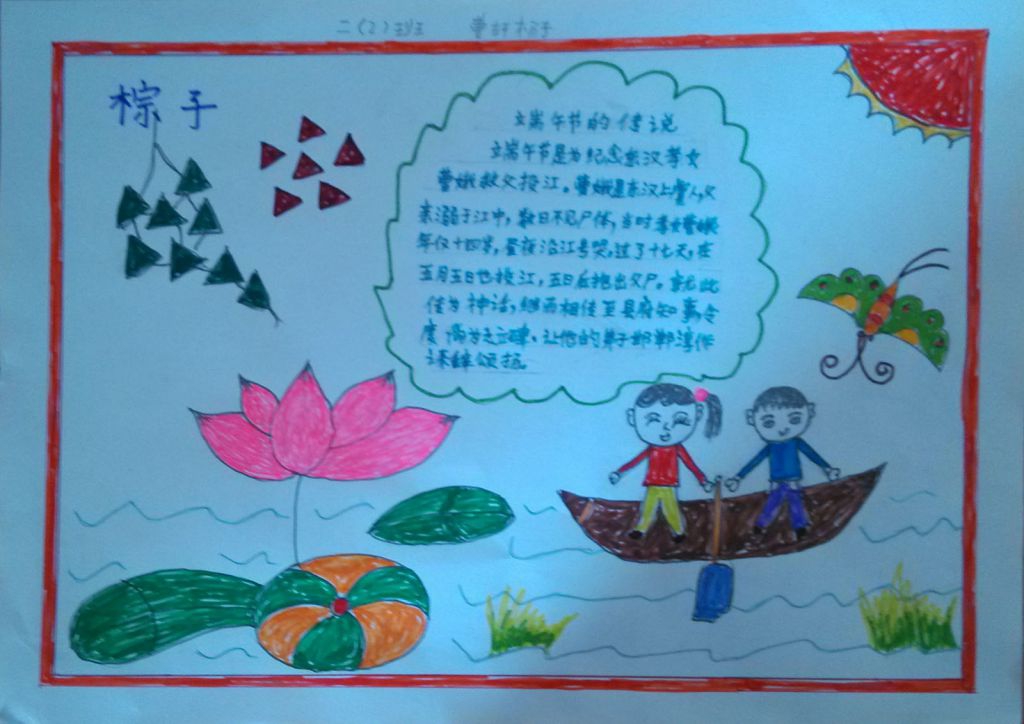 二(2)班 曹轩
棕子
端午节的传说
端午节是为纪念东汉孝女
曹娥救父投江。曹娥是东汉上虞人,父
亲溺于江中,数日不见尸体,当时孝女曹娥
年仅十四岁,昼夜沿江号哭,过了十七天,在
五月五日也投江,五日后抱出父尸。就此
传为神话,继而相传至县府知事,令
度尚为之立碑,让他的弟子邯郸淳作
诔辞颂扬